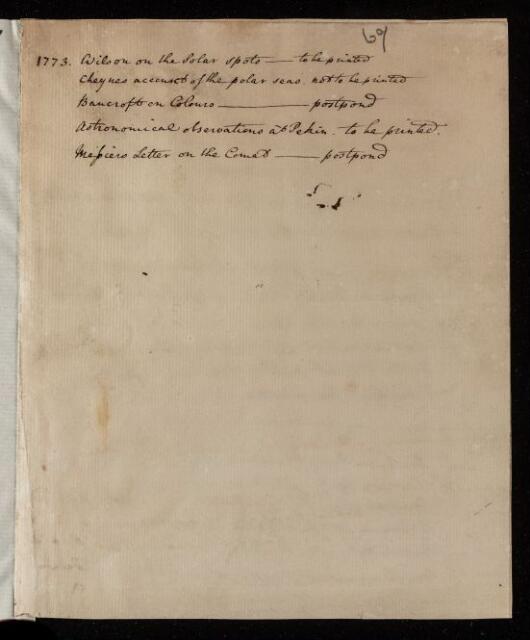 69
1773. Wilson on the Solar spots — to be printed
Cheynes account of the polar seas. not to be printed
Bancroft on Colours — postpond
Astronomical observations at Pekin. to be printed.
Messiers Letter on the Comet — postpond